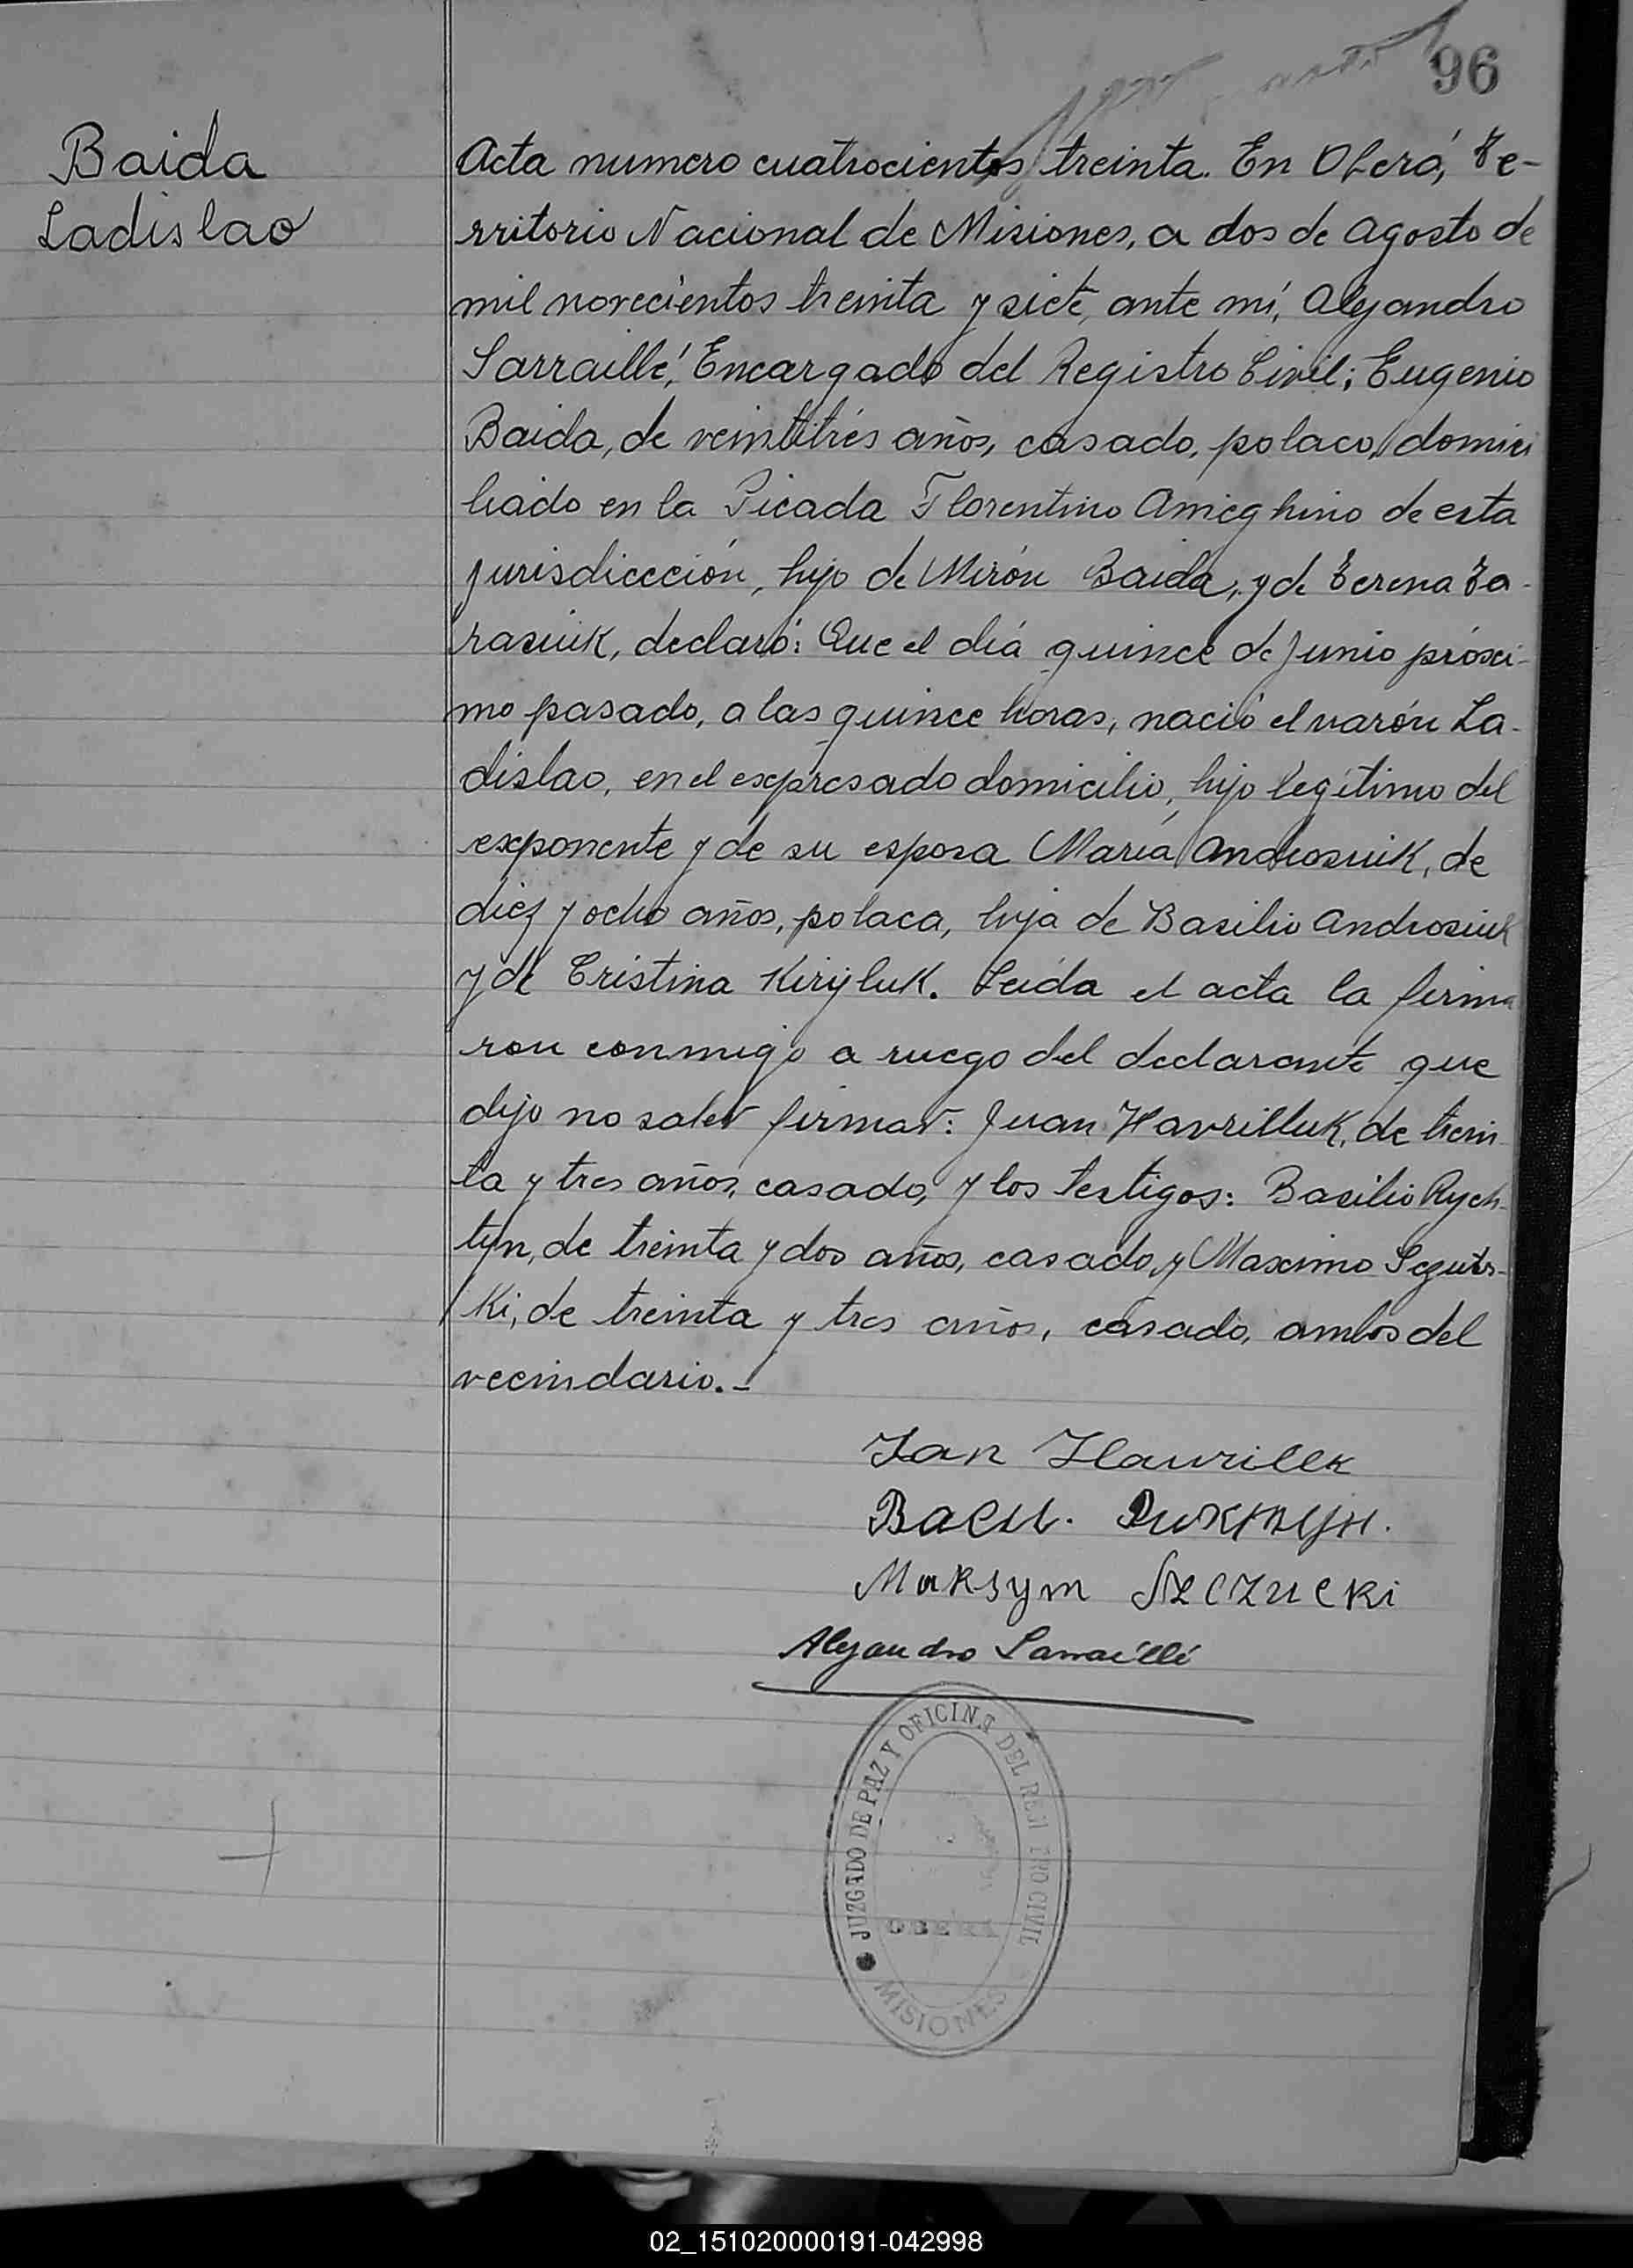 96
Baida
Ladislao
Acta numero cuatrocientos treinta. En Oberá, Te-
rritorio Nacional de Misiones, a dos de Agosto de
mil novecientos treinta y siete, ante mí, Alejandro
Sarraillé, Encargado del Registro Civil; Eugenio
Baida, de veintitrés años, casado, polaco, domici
liado en la Picada Florentino Ameghino de esta
jurisdicción, hijo de Mirón Baida, y de Terena Ta-
rasiuk, declaró: Que el día quince de Junio próxi-
mo pasado, a las quince horas, nació el varón La-
dislao, en el expresado domicilio, hijo legítimo del
exponente y de su esposa María Androsiuk, de
diez y ocho años, polaca, hija de Basilio Androsiuk
y de Cristina Kirijluk. Leída el acta la firma
ron conmigo a ruego del declarante que
dijo no saber firmar: Juan Havrilluk, de trein-
ta y tres años, casado, y los testigos: Basilio Rych-
tyn, de treinta y dos años, casado, y Maximo Sezuts-
ki, de treinta y tres años, casado, ambos del
vecindario.-
Jan Hawrillk
Васил. Рихтын.
Maksym Szczucki
Alejandro Sarraillé
JUZGADO DE PAZ Y OFICINA DEL REGISTRO CIVIL
OBERÁ
MISIONES
02_151020000191-042998